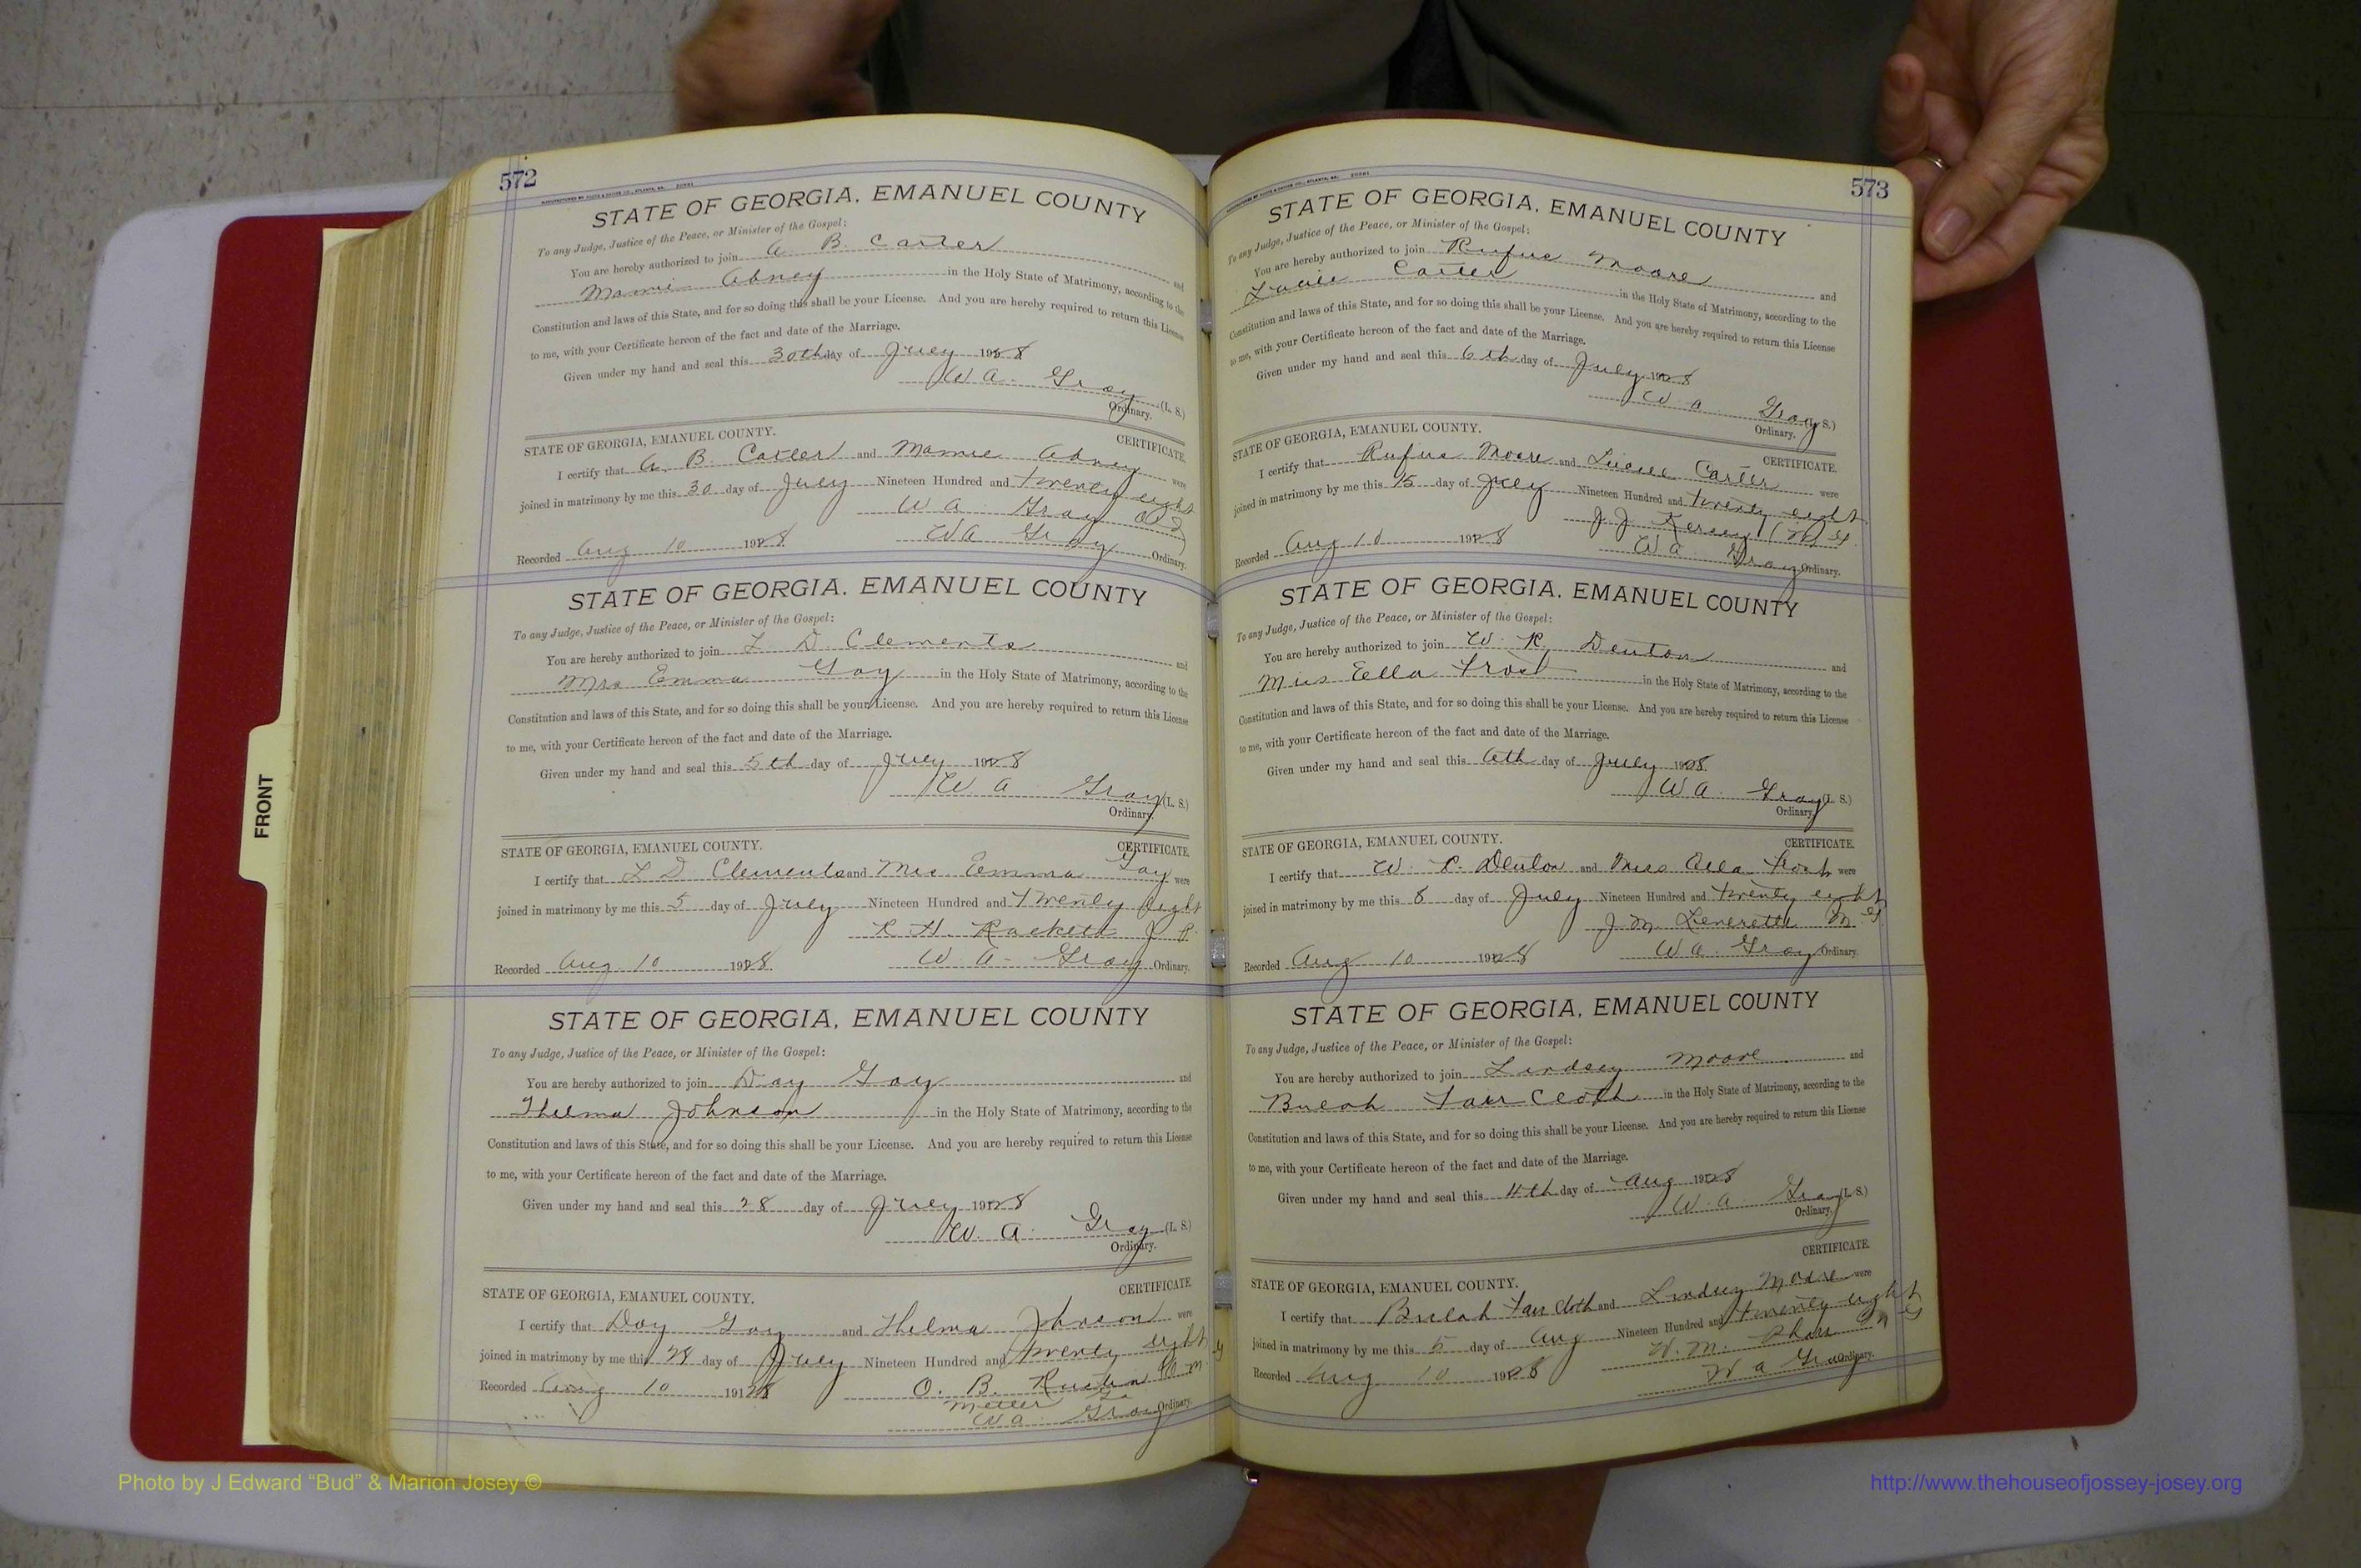 572
STATE OF GEORGIA, EMANUEL COUNTY
To any Judge, Justice of the Peace, or Minister of the Gospel:
You are hereby authorized to join A B. Carter and
Mamie Abney in the Holy State of Matrimony, according to the
Constitution and laws of this State, and for so doing this shall be your License. And you are hereby required to return this License
to me, with your Certificate hereon of the fact and date of the Marriage.
Given under my hand and seal this 30th day of July 1928
W A. Gray (L. S.)
Ordinary.
STATE OF GEORGIA, EMANUEL COUNTY. CERTIFICATE.
I certify that A. B. Carter and Mamie Abney were
joined in matrimony by me this 30 day of July Nineteen Hundred and twenty eight
W A. Gray Ord
Recorded Aug 10 1928 W A Gray Ordinary.
STATE OF GEORGIA, EMANUEL COUNTY
To any Judge, Justice of the Peace, or Minister of the Gospel:
You are hereby authorized to join L D. Clements and
Mrs Emma Gay in the Holy State of Matrimony, according to the
Constitution and laws of this State, and for so doing this shall be your License. And you are hereby required to return this License
to me, with your Certificate hereon of the fact and date of the Marriage.
Given under my hand and seal this 5th day of July 1928
W A Gray (L. S.)
Ordinary.
STATE OF GEORGIA, EMANUEL COUNTY. CERTIFICATE.
I certify that L D Clements and Mrs Emma Gay were
joined in matrimony by me this 5 day of July Nineteen Hundred and twenty eight
R. H. Rackett J P.
Recorded Aug. 10 1928. W. A. Gray Ordinary.
STATE OF GEORGIA, EMANUEL COUNTY
To any Judge, Justice of the Peace, or Minister of the Gospel:
You are hereby authorized to join Day Gay and
Thelma Johnson in the Holy State of Matrimony, according to the
Constitution and laws of this State, and for so doing this shall be your License. And you are hereby required to return this License
to me, with your Certificate hereon of the fact and date of the Marriage.
Given under my hand and seal this 28 day of July 1928
W. A. Gray (L. S.)
Ordinary.
CERTIFICATE.
STATE OF GEORGIA, EMANUEL COUNTY.
I certify that Day Gay and Thelma Johnson were
joined in matrimony by me this 28 day of July Nineteen Hundred and twenty eight
Recorded Aug 10 1928 O. B. Rustin
Metter Ga
W A Gray Ordinary.
573
STATE OF GEORGIA, EMANUEL COUNTY
To any Judge, Justice of the Peace, or Minister of the Gospel:
You are hereby authorized to join Rufus Moore and
Lucile Carter in the Holy State of Matrimony, according to the
Constitution and laws of this State, and for so doing this shall be your License. And you are hereby required to return this License
to me, with your Certificate hereon of the fact and date of the Marriage.
Given under my hand and seal this 6th day of July 1928
W A Gray (L. S.)
Ordinary.
STATE OF GEORGIA, EMANUEL COUNTY. CERTIFICATE.
I certify that Rufus Moore and Lucile Carter were
joined in matrimony by me this 15 day of July Nineteen Hundred and twenty eight
J. J. Kersey (M G
Recorded Aug 10 1928 W a Gray Ordinary.
STATE OF GEORGIA, EMANUEL COUNTY
To any Judge, Justice of the Peace, or Minister of the Gospel:
You are hereby authorized to join W. R. Denton and
Miss Eella Frost in the Holy State of Matrimony, according to the
Constitution and laws of this State, and for so doing this shall be your License. And you are hereby required to return this License
to me, with your Certificate hereon of the fact and date of the Marriage.
Given under my hand and seal this 6th day of July 1928.
W A. Gray (L. S.)
Ordinary.
STATE OF GEORGIA, EMANUEL COUNTY. CERTIFICATE.
I certify that W. R. Denton and Miss Frost were
joined in matrimony by me this 8 day of July Nineteen Hundred and twenty eight
J. M. Leverette M G
Recorded Aug 10 1928 W a. Gray Ordinary.
STATE OF GEORGIA, EMANUEL COUNTY
To any Judge, Justice of the Peace, or Minister of the Gospel:
You are hereby authorized to join Lindsey Moore and
Bulah Fair Cloth in the Holy State of Matrimony, according to the
Constitution and laws of this State, and for so doing this shall be your License. And you are hereby required to return this License
to me, with your Certificate hereon of the fact and date of the Marriage.
Given under my hand and seal this 4th day of Aug 1928
W. a Gray (L. S.)
Ordinary.
CERTIFICATE.
STATE OF GEORGIA, EMANUEL COUNTY.
I certify that Bulah Fair Cloth and Lindsey Moore were
joined in matrimony by me this 5 day of Aug Nineteen Hundred and twenty eight
W. M. M G
Recorded Aug 10 1928 W a Gray Ordinary.
FRONT
Photo by J Edward “Bud” & Marion Josey ©
http://www.thehouseofjossey-josey.org